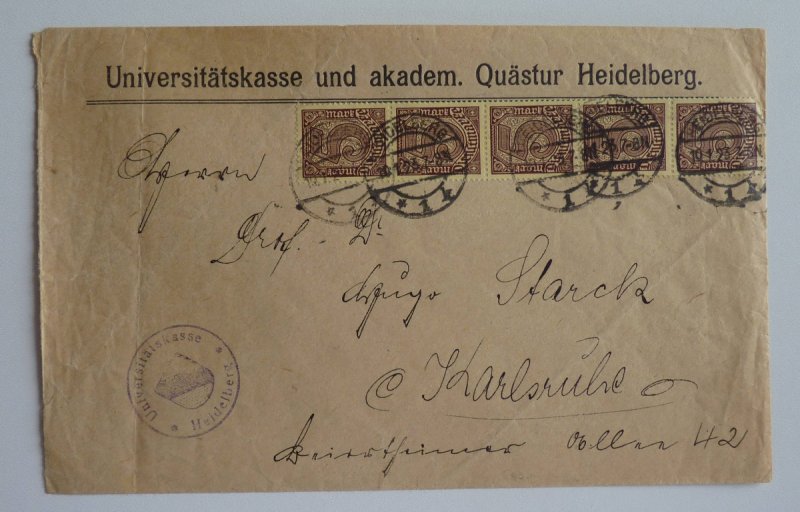 Universitätskasse und akadem. Quästur Heidelberg.
Herrn
Prof. Dr.
Hugo Starck
Karlsruhe
Beiertheimer Allee 42
Universitätskasse
* Heidelberg *